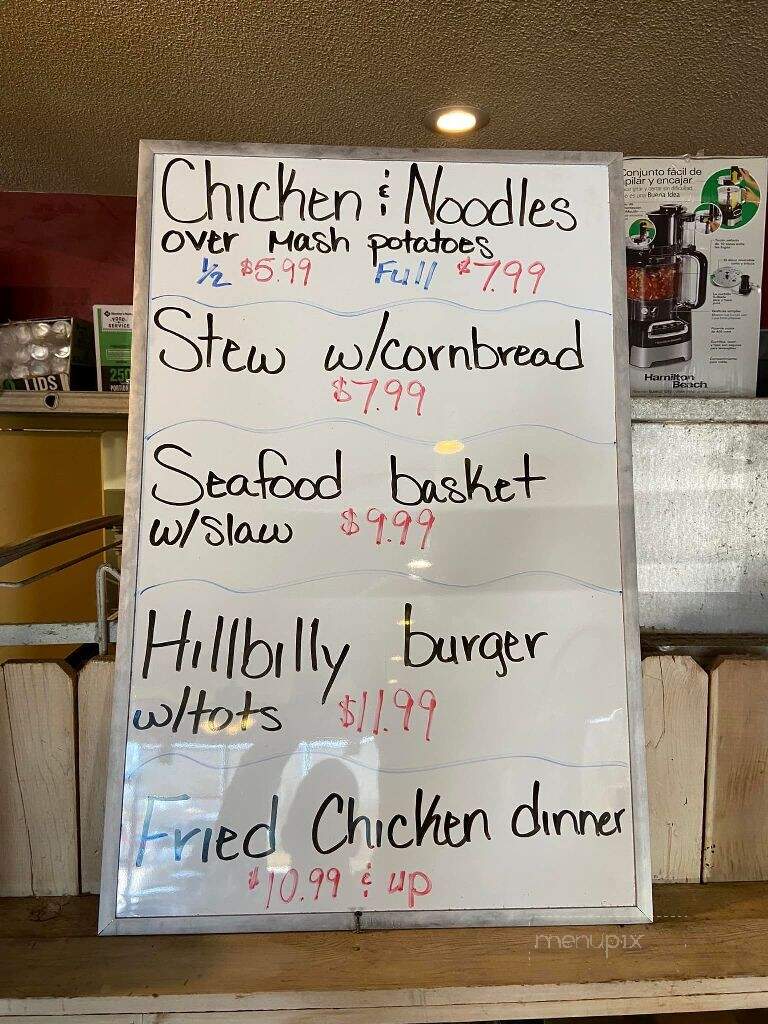 Chicken & Noodles
over Mash potatoes
1/2 $5.99 Full $7.99
Stew w/cornbread
$7.99
Seafood basket
w/slaw $9.99
Hillbilly burger
w/tots $11.99
Fried Chicken dinner
$10.99 & up
Conjunto fácil de
apilar y encajar
Buena Idea
Hamilton
Beach
FOOD
SERVICE
250
LIDS
menupix